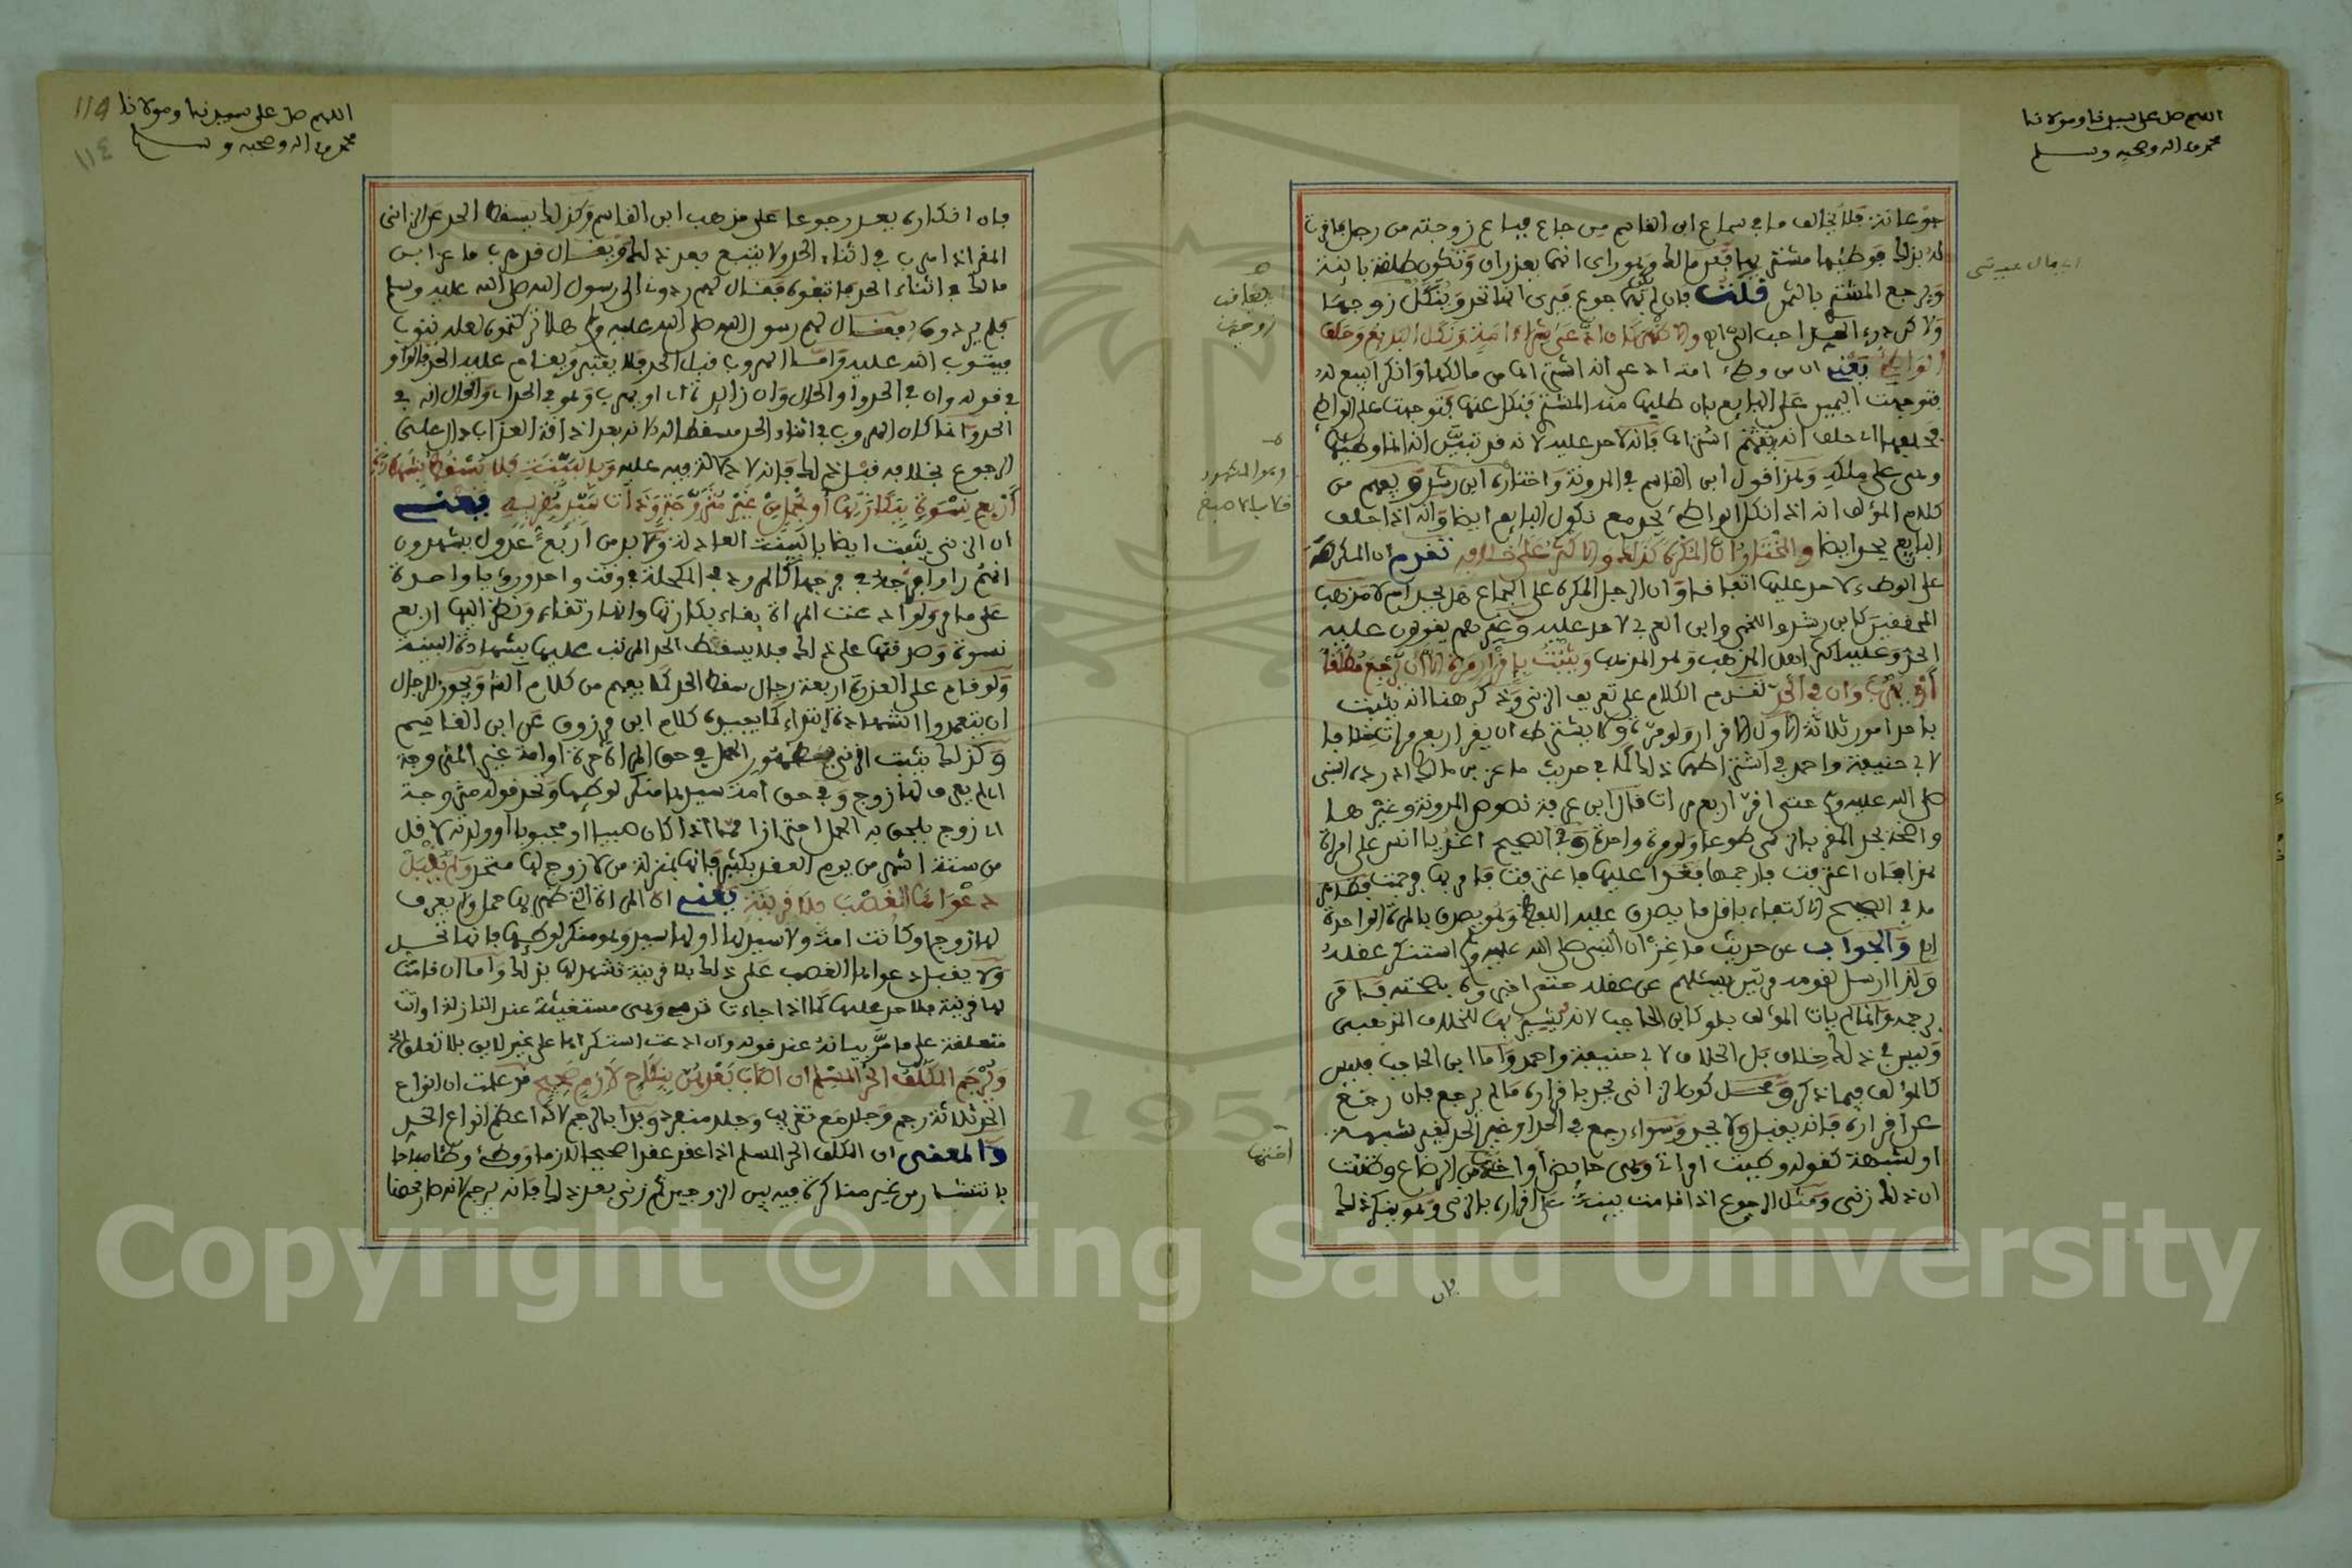 اللهم صل على سيدنا ومولانا
محمد وءاله وصحبه وسلم
جوعا نه فلا يخالف ما في سماع ابن القاسم من جاع فباع زوجته من رجل فاقرت
له بذلك فوطئها مشتريها فعن مالك وهو راى انهما يعذران وتكون طلقة بائنة
ويرجع المشتري بالثمن قلت فان لم يكن جوع فيرى انها تحد وينكل زوجها
ولاكن درء الحد احب الي والاظهر كان ادعى شراء امة ونكل البائع وحلف
الواطئ يعني ان من وطئ امة ادعى انه اشتراها من مالكها وانكر البيع له
فتوجهت اليمين على البائع بان طلبها منه المشتري فنكل عنها فتوجهت على الواطئ
فحلفها اي حلف انه اشتراها فانه لا حد عليه لانه قد تبين انه انما وطئها
وهي على ملكه وهذا قول ابن القاسم في المدونة واختاره ابن رشد ويفهم من
كلام المؤلف انه اذا نكل الواطئ يحد مع نكول البائع ايضا وانه اذا حلف
البائع يحد ايضا والمختار ان المكره كذلك والاكثر على خلافه تقدم ان المكرهة
على الوطء لا حد عليها اتفاقا وان الرجل المكره على الجماع هل يحد ام لا مذهب
المحققين كابن رشد واللخمي وابن العربي لا حد عليه وغيرهم يقولون عليه
الحد وعليه اكثر اهل المذهب وهو المذهب ويثبت باقرار مرة الا ان يرجع مطلقا
او يهرب وان في الحد تقدم الكلام على تعريف الزنى وذكر هنا انه يثبت
باحد امور ثلاثة الاول الاقرار ولو مرة ولا يشترط ان يقر اربع مرات خلافا
لابي حنيفة واحمد في اشتراطهما ذلك لما في حديث ماعز بن مالك انه رده النبي
صلى الله عليه وسلم حتى اقر اربع مرات قال ابن عرفة نصوص المدونة وغيرها
واضحة بحد المقر بالزنى طوعا ولو مرة واحدة وفي الصحيح اغد يا انيس على امراة
هذا فان اعترفت فارجمها فغدا عليها فاعترفت فامر بها فرجمت فظاهر
ما في الصحيح الاكتفاء باقل ما يصدق عليه اللفظ وهو يصدق بالمرة الواحدة
اه والجواب عن حديث ماعز ان النبي صلى الله عليه وسلم استنكر عقله
ولذا ارسل لقومه مرتين يسئلهم عن عقله حتى اخبروه بصحته فامر
برجمه وانما لم يات المؤلف بلو كابن الحاجب لانه يشير بها للخلاف المذهبي
وليس في ذلك خلاف بل الخلاف لابي حنيفة واحمد واما ابن الحاجب فليس
كالمؤلف فيما ذكر ومحل كون الزاني يحد باقراره ما لم يرجع فان رجع
عن اقراره فانه يقبل ولا يحد وسواء رجع في الحد او غير الحد لغير شبهة
او لشبهة كقوله وطئت امراتي وهي حائض او اختي من الرضاع وظننت
ان ذلك زنى ومثل الرجوع اذا قامت بينة على اقراره بالزنى وهو ينكر ذلك
فان
وهو المشهور
اختها
اللهم صل على سيدنا ومولانا
محمد وءاله وصحبه وسلم
119
١١٤
فان انكاره يعد رجوعا على مذهب ابن القاسم وكذلك يسقط الحد عن الزاني
المقر اذا هرب في اثناء الحد ولا يتبع بعد ذلك ويقال قد هرب ماعز ابن
مالك في اثناء الحد فاتبعوه فقال لهم ردوني الى رسول الله صلى الله عليه وسلم
فلم يردوه فقال لهم رسول الله صلى الله عليه وسلم هلا تركتموه لعله يتوب
فيتوب الله عليه واما الهروب قبل الحد فلا يعتبر ويقام عليه الحد فالواو
في قوله وان في الحد واو الحال وان زائدة اي او يهرب وهو في الحد اي والحال انه في
الحد وانما كان الهروب في اثناء الحد مسقطا له لانه بعد اذاقة العذاب دال على
الرجوع بخلافه قبل ذلك فانه لا دلالة فيه عليه وبالبينة فلا يسقط بشهادة
اربع نسوة ببكارتها او بحمل في غير متزوجة وذات سيد مقر به يعني
ان الزنى يثبت ايضا بالبينة العادلة ولا بد من اربعة عدول يشهدون
انهم راوا فرجه في فرجها كالمرود في المكحلة في وقت واحد ورويا واحدة
على ما مر ولو ادعت المراة بقاء بكارتها وانها رتقاء ونظر اليها اربع
نسوة وصدقنها على ذلك فلا يسقط الحد المرتب عليها بشهادة البينة
ولو قام على العذرة اربعة رجال سقط الحد كما يفهم من كلام المؤلف ويجوز للرجال
ان يتعمدوا الشهادة ابتداء كما يفيده كلام ابن مرزوق عن ابن القاسم
وكذلك يثبت الزنى بظهور الحمل في حق المراة حرة او امة غير المتزوجة
اي لم يعرف لها زوج وفي حق امة سيدها منكر لوطئها ونحر قوله متزوجة
اي زوج يلحق به الحمل احترازا مما اذا كان صبيا او مجبوبا او ولدته لاقل
من ستة اشهر من يوم العقد بكثير فانها بمنزلة من لا زوج لها فتحد ولم يقبل
دعواها الغصب بلا قرينة يعني ان المراة التي ظهر بها حمل ولم يعرف
لها زوج او كانت امة ولا سيد لها او لها سيد وهو منكر لوطئها فانها تحد
ولا يقبل دعواها الغصب على ذلك بلا قرينة تشهد لها بذلك واما ان قامت
لها قرينة فلا حد عليها كما اذا جاءت تدمى وهي مستغيثة عند النازلة او اتت
متعلقة على ما مر بيانه عند قوله وان ادعت استكراها على غير لائق بلا تعلق الخ
ويرجم المكلف الحر المسلم ان اصاب بعدهن بنكاح لازم صحيح قد علمت ان انواع
الحد ثلاثة رجم وجلد مع تغريب وجلد منفرد وبدا بالرجم لانه اعظم انواع الحد
والمعنى ان المكلف الحر المسلم اذا عقد عقدا صحيحا لازما ووطئ وطئا مباحا
بانتشار من غير مناكرة فيه بين الزوجين ثم زنى بعد ذلك فانه يرجم لانه صار محصنا
Copyright © King Saud University
1957